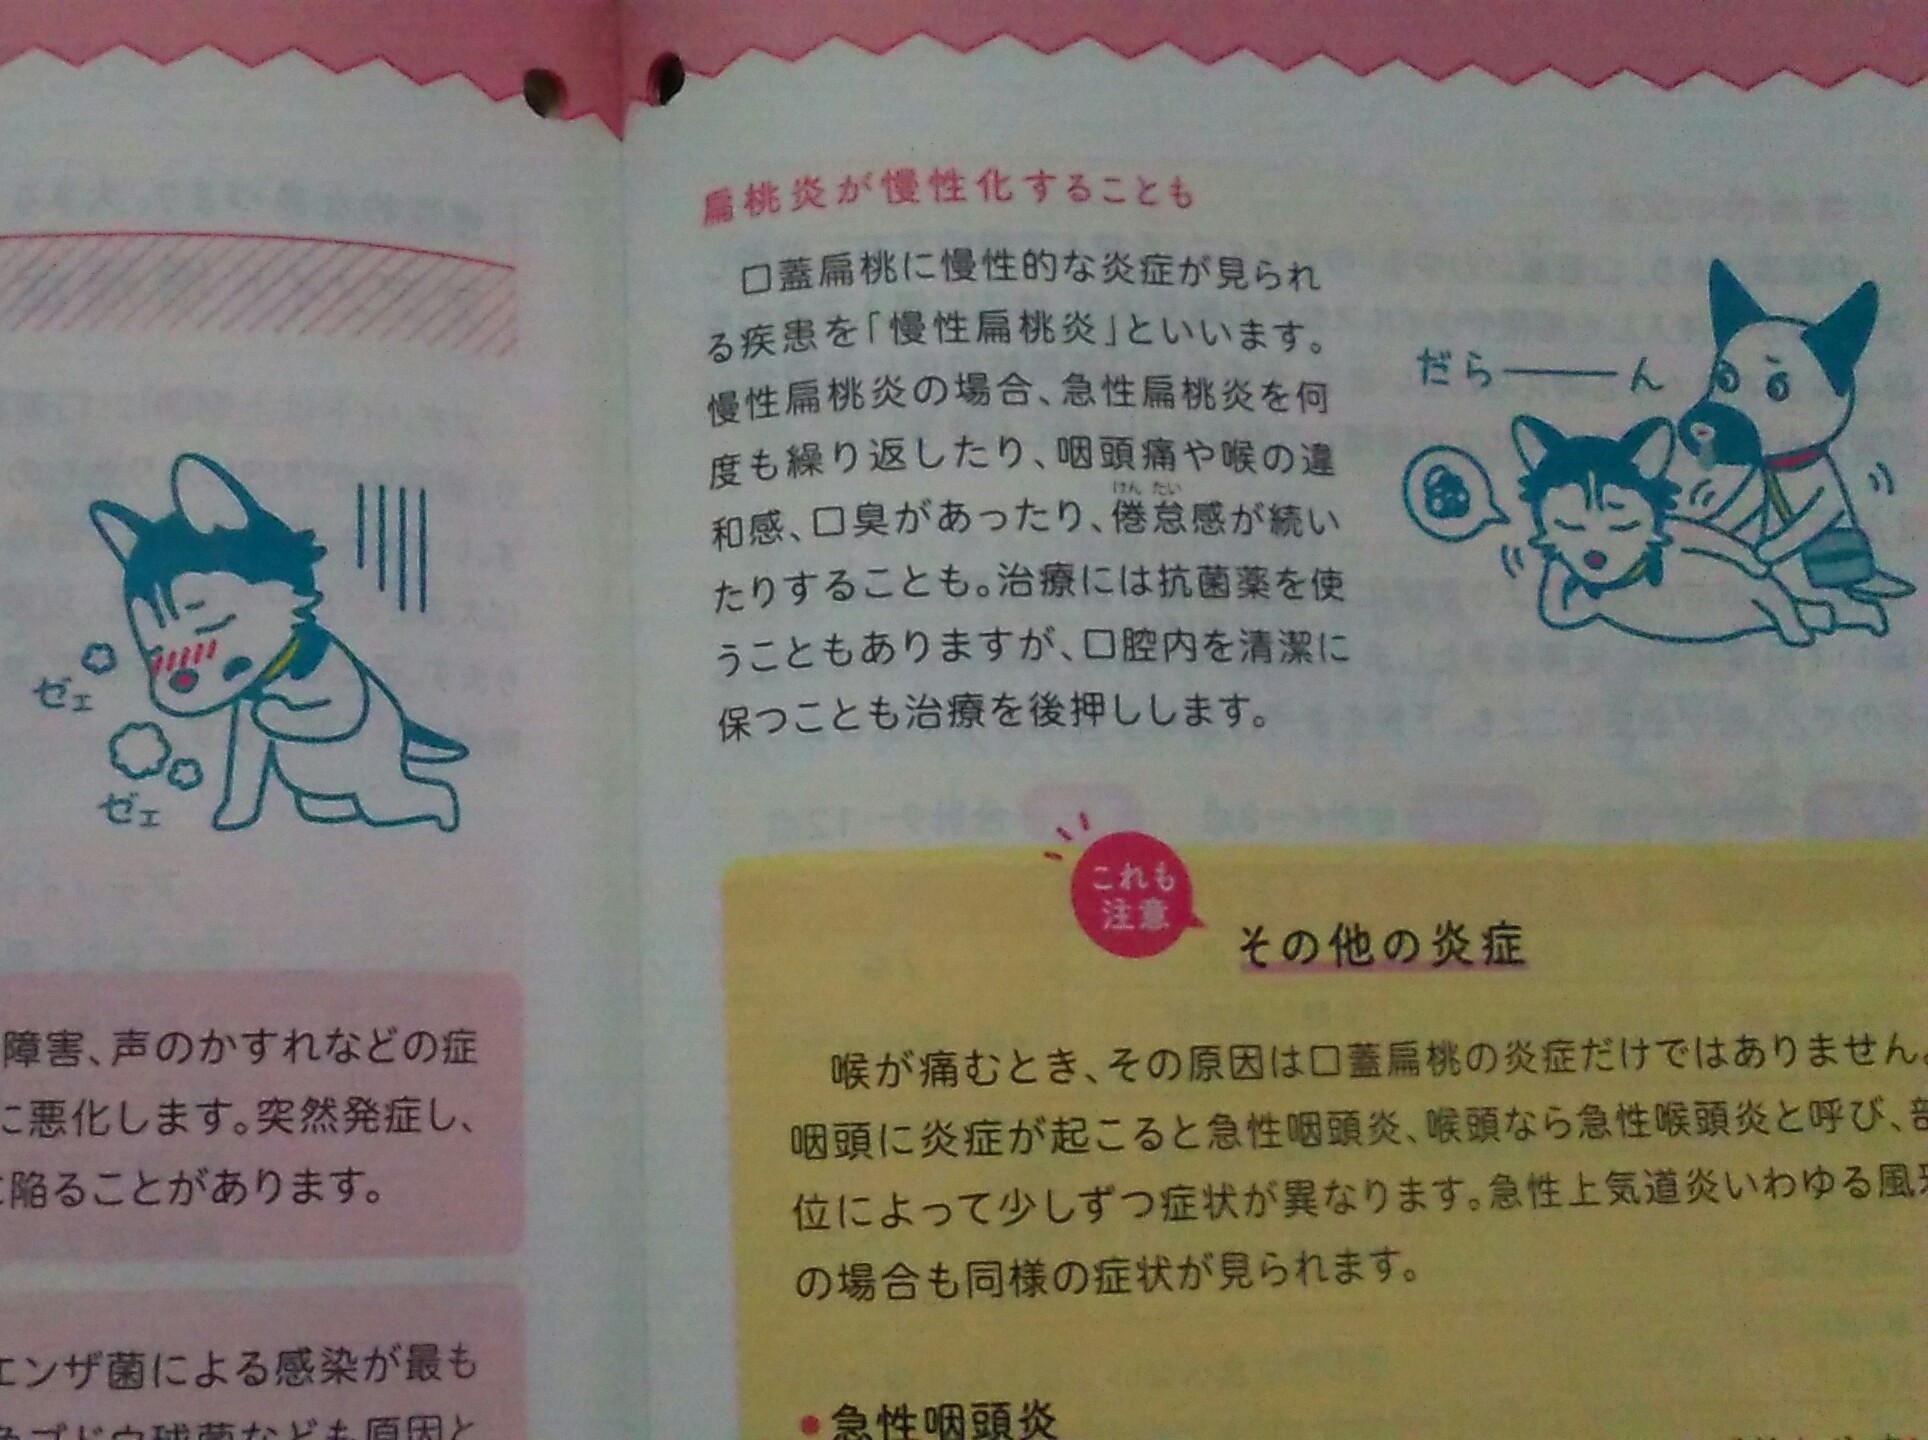 ゼェ
ゼェ
障害、声のかすれなどの症
に悪化します。突然発症し、
陥ることがあります。
エンザ菌による感染が最も
扁桃炎が慢性化することも
口蓋扁桃に慢性的な炎症が見られ
る疾患を「慢性扁桃炎」といいます。
慢性扁桃炎の場合、急性扁桃炎を何
度も繰り返したり、咽頭痛や喉の違
けん たい
和感、口臭があったり、倦怠感が続い
たりすることも。治療には抗菌薬を使
うこともありますが、口腔内を清潔に
保つことも治療を後押しします。
だらーーん
これも
注意
その他の炎症
喉が痛むとき、その原因は口蓋扁桃の炎症だけではありません。
咽頭に炎症が起こると急性咽頭炎、喉頭なら急性喉頭炎と呼び、部
位によって少しずつ症状が異なります。急性上気道炎いわゆる風邪
の場合も同様の症状が見られます。
●急性咽頭炎